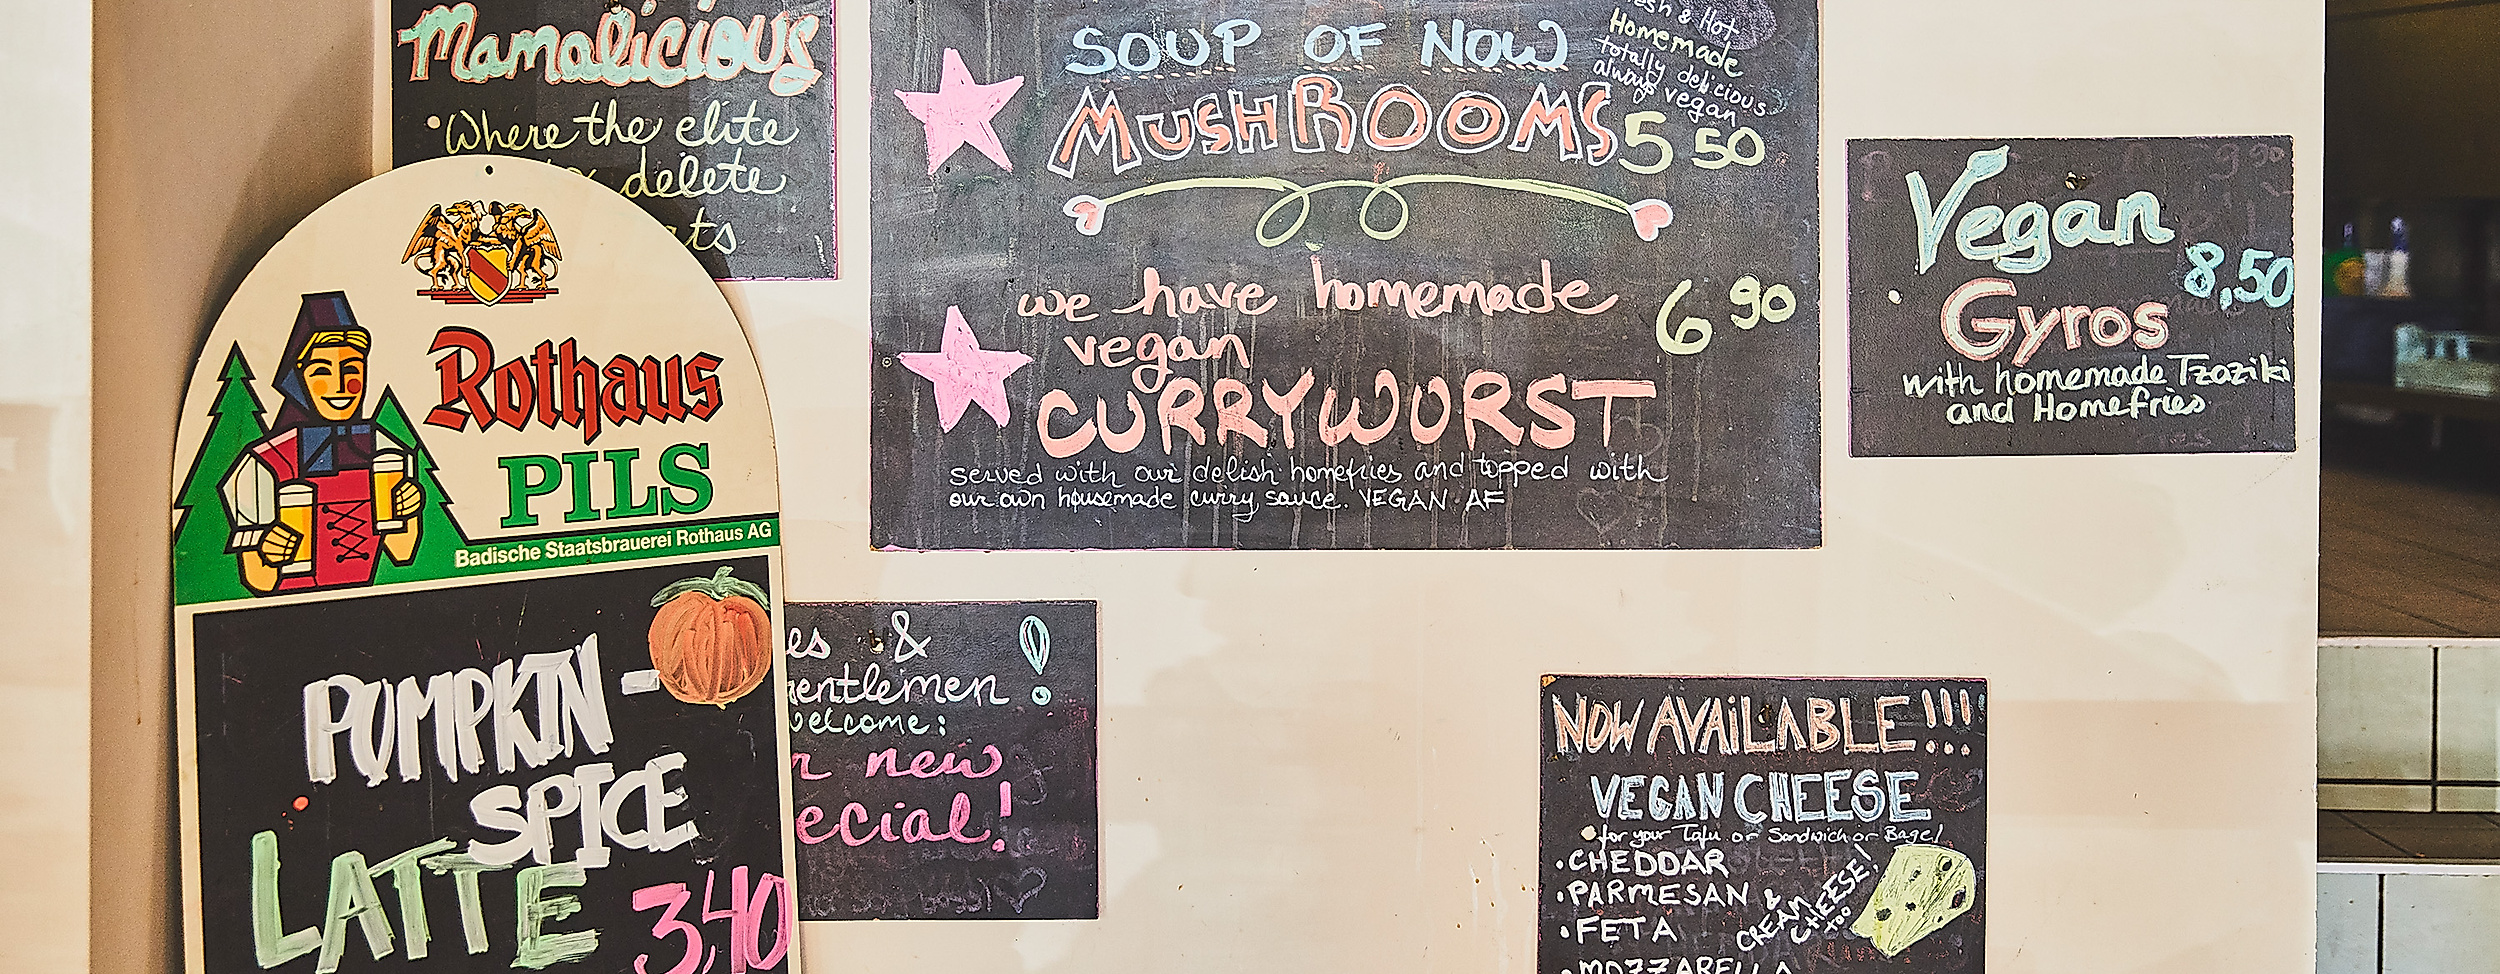 Mamalicious
Where the elite
delete
SOUP OF NOW
& Hot
Homemade
totally delicious
always vegan
MUSHROOMS 5 50
we have homemade 6 90
vegan
CURRYWURST
served with our delish homefries and topped with
our own housemade curry sauce. VEGAN AF
Vegan
8,50
Gyros
with homemade Tzaziki
and Homefries
Rothaus
PILS
Badische Staatsbrauerei Rothaus AG
PUMPKIN-
SPICE
LATTE 3,40
& !
new
NOW AVAILABLE!!!
VEGAN CHEESE
for your Tofu or Sandwich or Bagel
• CHEDDAR
• PARMESAN
• FETA
• MOZZARELLA
& CREAM CHEESE! too